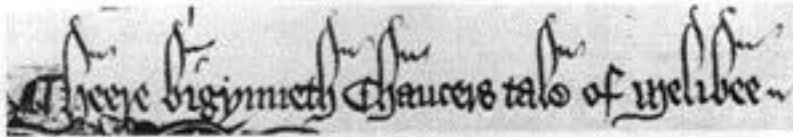 Heere bigynneth Chaucers tale of Melibee